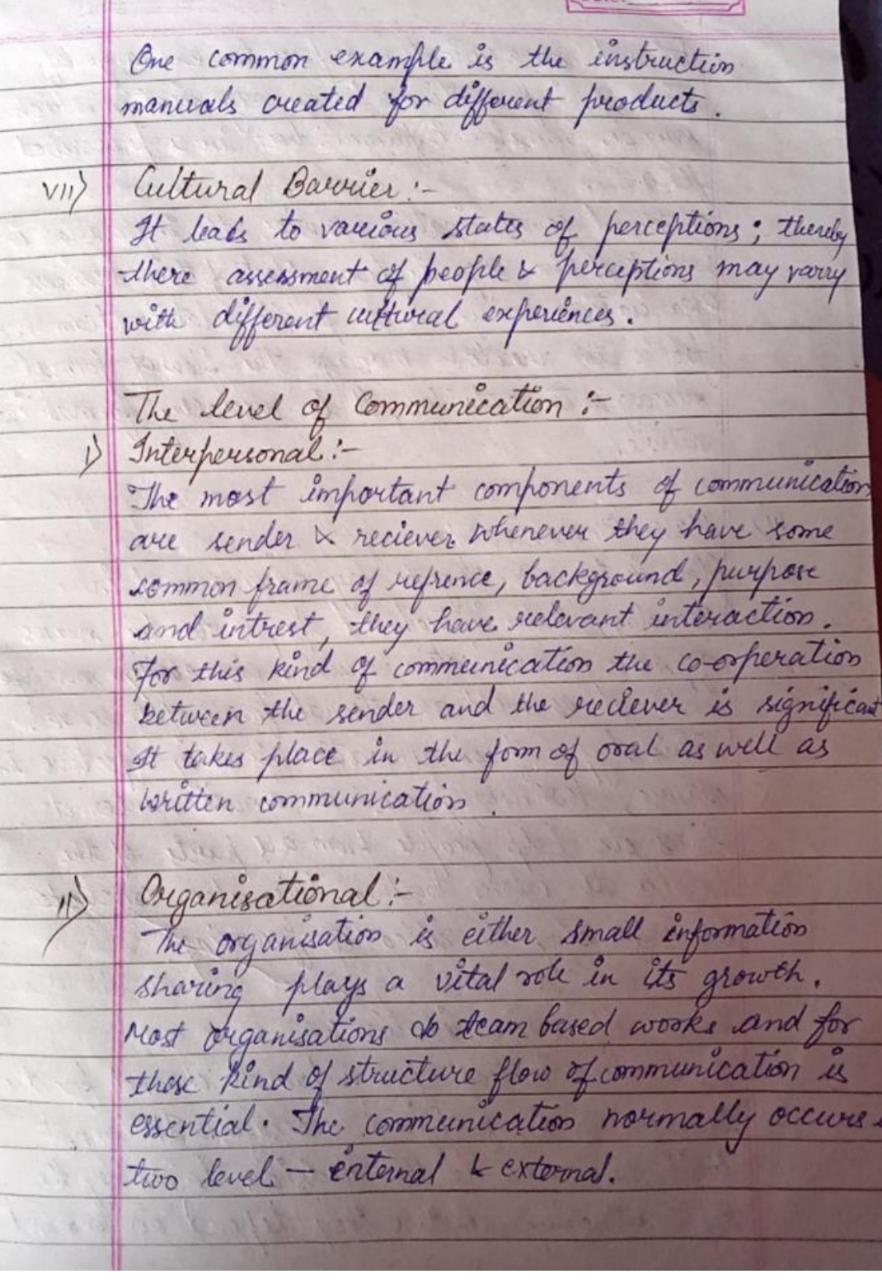 One common example is the instruction
manuals created for different products.
VII) Cultural Barrier :-
It leads to various states of perceptions ; thereby
there assessment of people & perceptions may varry
with different cultural experiences.
The level of Communication :-
i) Interpersonal :-
The most important components of communication
are sender & reciever whenever they have some
common frame of refrence, background, purpose
and intrest, they have relevant interaction.
For this kind of communication the co-orperation
between the sender and the reciever is significant
It takes place in the form of oral as well as
written communication.
II) Organisational :-
The organisation is either small information
sharing plays a vital role in its growth.
Most organisations do team based works and for
these kind of structure flow of communication is
essential. The communication normally occurs
two level - internal & external.